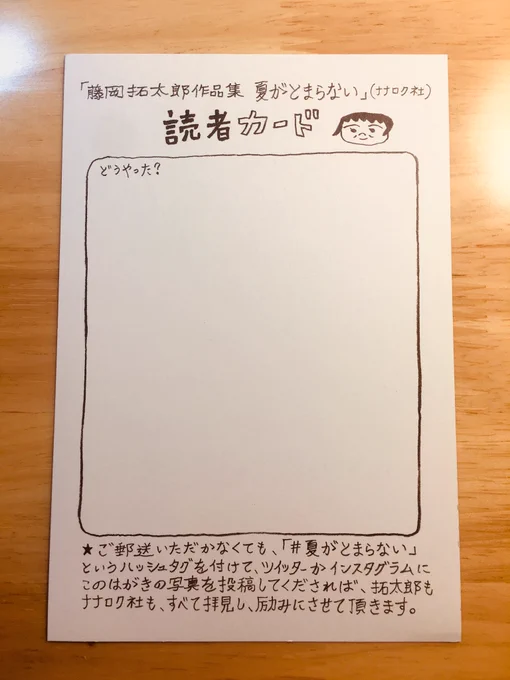 「藤岡拓太郎作品集 夏がとまらない」(ナナロク社)
読者カード
どうやった?
★ご郵送いただかなくても、「#夏がとまらない」
というハッシュタグを付けて、ツイッターかインスタグラムに
このはがきの写真を投稿してくだされば、拓太郎も
ナナロク社も、すべて拝見し、励みにさせて頂きます。